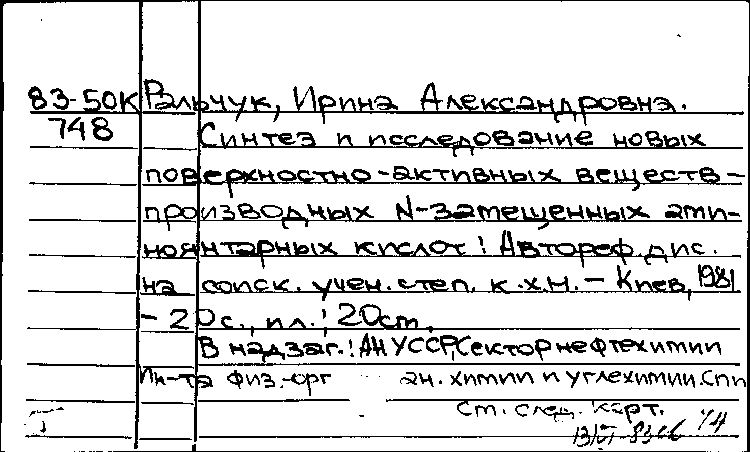 83-50К Ральчук, Ирина Александровна.
748 Синтез и исследование новых
поверхностно-активных веществ -
производных N-замещенных ами-
ноянтарных кислот: Автореф. дис.
на соиск. учен. степ. к.х.н. - Киев, 1981
- 20с., ил.; 20см.
В надзаг.: АН УССР, Сектор нефтехимии
Ин-та физ.-орг ан. химии и углехимии. Спи
см. след. карт.